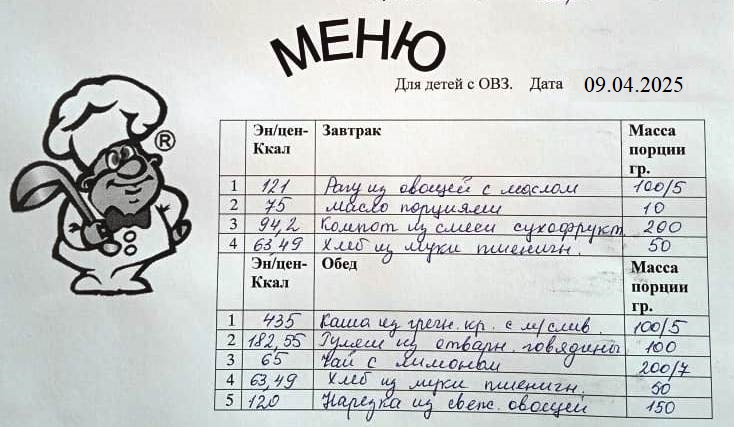 МЕНЮ
Для детей с ОВЗ. Дата 09.04.2025
Эн/цен-Ккал Завтрак Масса порции гр.
1 121 Рагу из овощей с маслом 100/5
2 75 Масло порциями 10
3 94,2 Компот из смеси сухофрукт 200
4 63,49 Хлеб из муки пшеничн. 50
Эн/цен-Ккал Обед Масса порции гр.
1 435 Каша из гречн. кр. с м/слив. 100/5
2 182,55 Гуляш из отварн. говядины 100
3 65 Чай с лимоном 200/7
4 63,49 Хлеб из муки пшеничн. 50
5 120 Нарезка из свеж. овощей 150
®